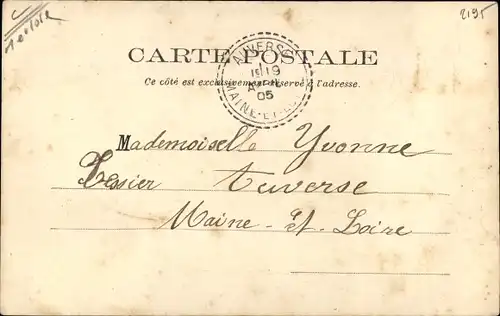 2195
CARTE POSTALE
Ce côté est exclusivement réservé à l'adresse.
AUVERSE
19
05
MAINE-ET-
Mademoiselle Yvonne
Tessier Auverse
Maine-et-Loire